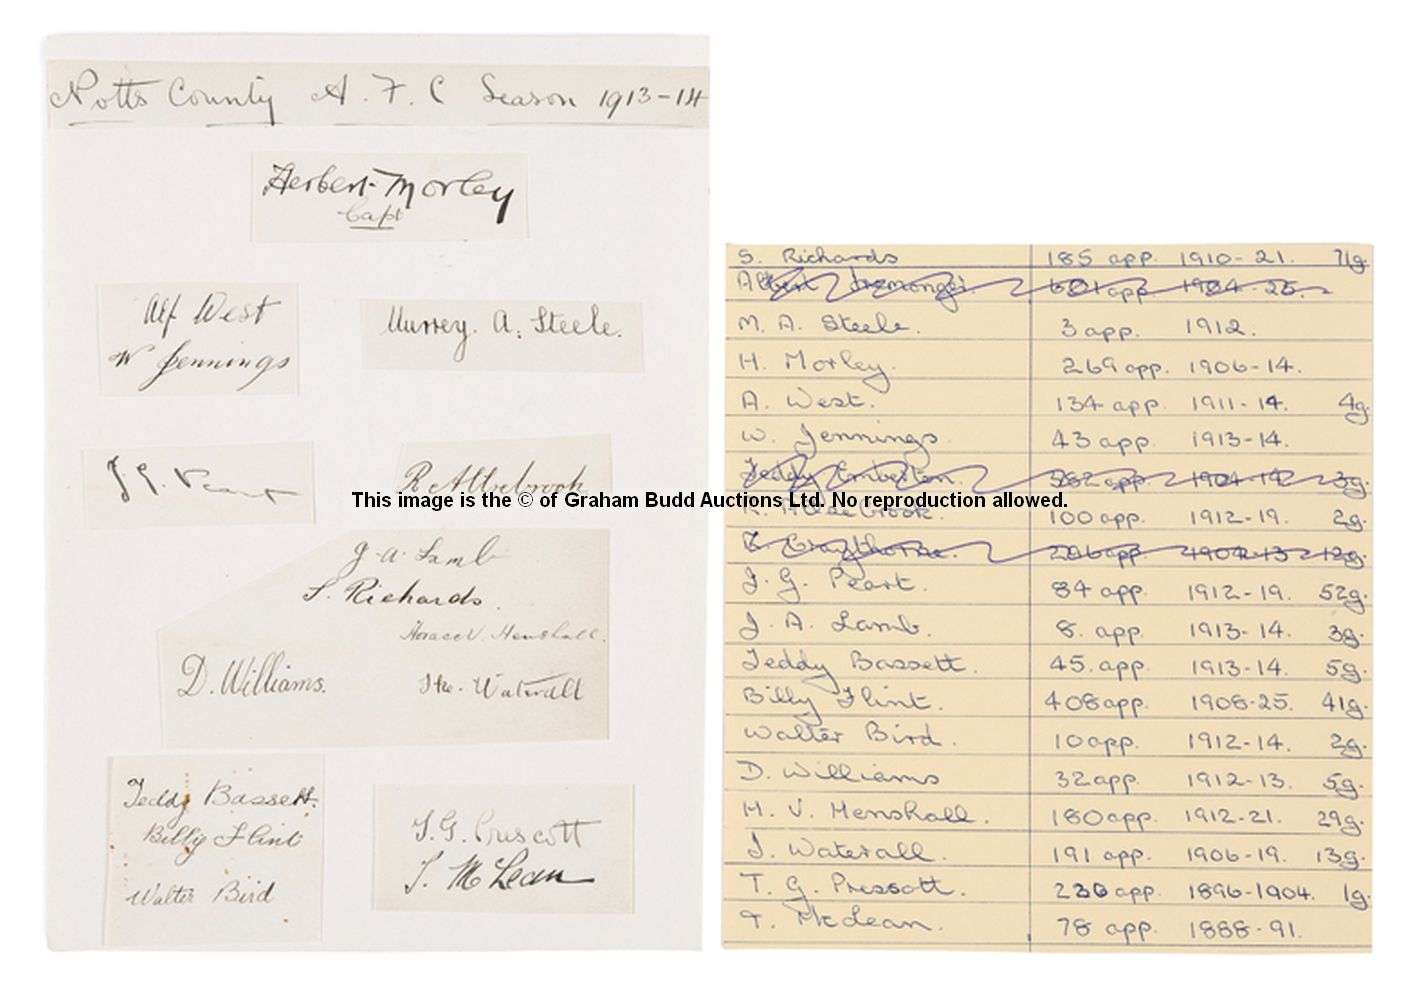 Notts County A. F. C Season 1913-14
Herbert Morley
Capt
Alf West
W Jennings
Murrey. A. Steele.
J G. Peart
R Allsebrook
J. A. Lamb
S. Richards.
Horace V. Henshall.
D. Williams.
Ike. Waterall
Teddy Bassett.
Billy Flint
Walter Bird
T. G. Prescott
T. McLean
This image is the © of Graham Budd Auctions Ltd. No reproduction allowed.
S. Richards 185 app. 1910-21. 71g.
Albert Iremonger 601 app 1904-25.
M. A. Steele. 3 app. 1912.
H. Morley. 269 app. 1906-14.
A. West. 134 app. 1911-14. 4g.
W. Jennings. 43 app. 1913-14.
Teddy Emberton. 362 app 1904-14 3g.
R. Allsebrook. 100 app. 1912-19. 2g.
Craythorne. 286 app 1904-13 12g.
J. G. Peart. 84 app. 1912-19. 52g.
J. A. Lamb. 8. app. 1913-14. 3g.
Teddy Bassett. 45. app. 1913-14. 5g.
Billy Flint. 408 app. 1908-25. 41g.
Walter Bird. 10 app. 1912-14. 2g.
D. Williams 32 app. 1912-13. 5g.
H. V. Henshall. 180 app. 1912-21. 29g.
I. Waterall. 191 app. 1906-19. 13g.
T. G. Pressott. 230 app. 1896-1904. 1g.
T. McLean. 78 app. 1888-91.